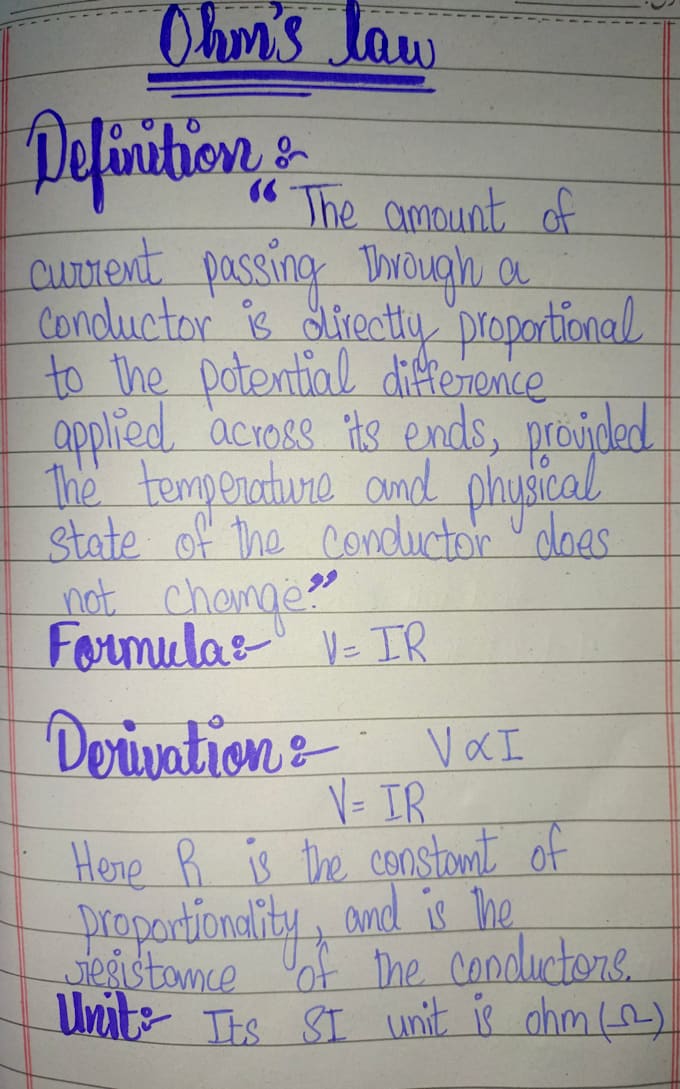 Ohm's law
Definition :-
“ The amount of
current passing through a
conductor is directly proportional
to the potential difference
applied across its ends, provided
the temperature and physical
state of the conductor does
not change.”
Formula:- V= IR
Derivation :- V ∝ I
V= IR
Here R is the constant of
proportionality, and is the
resistance of the conductors.
Unit:- Its SI unit is ohm (Ω)